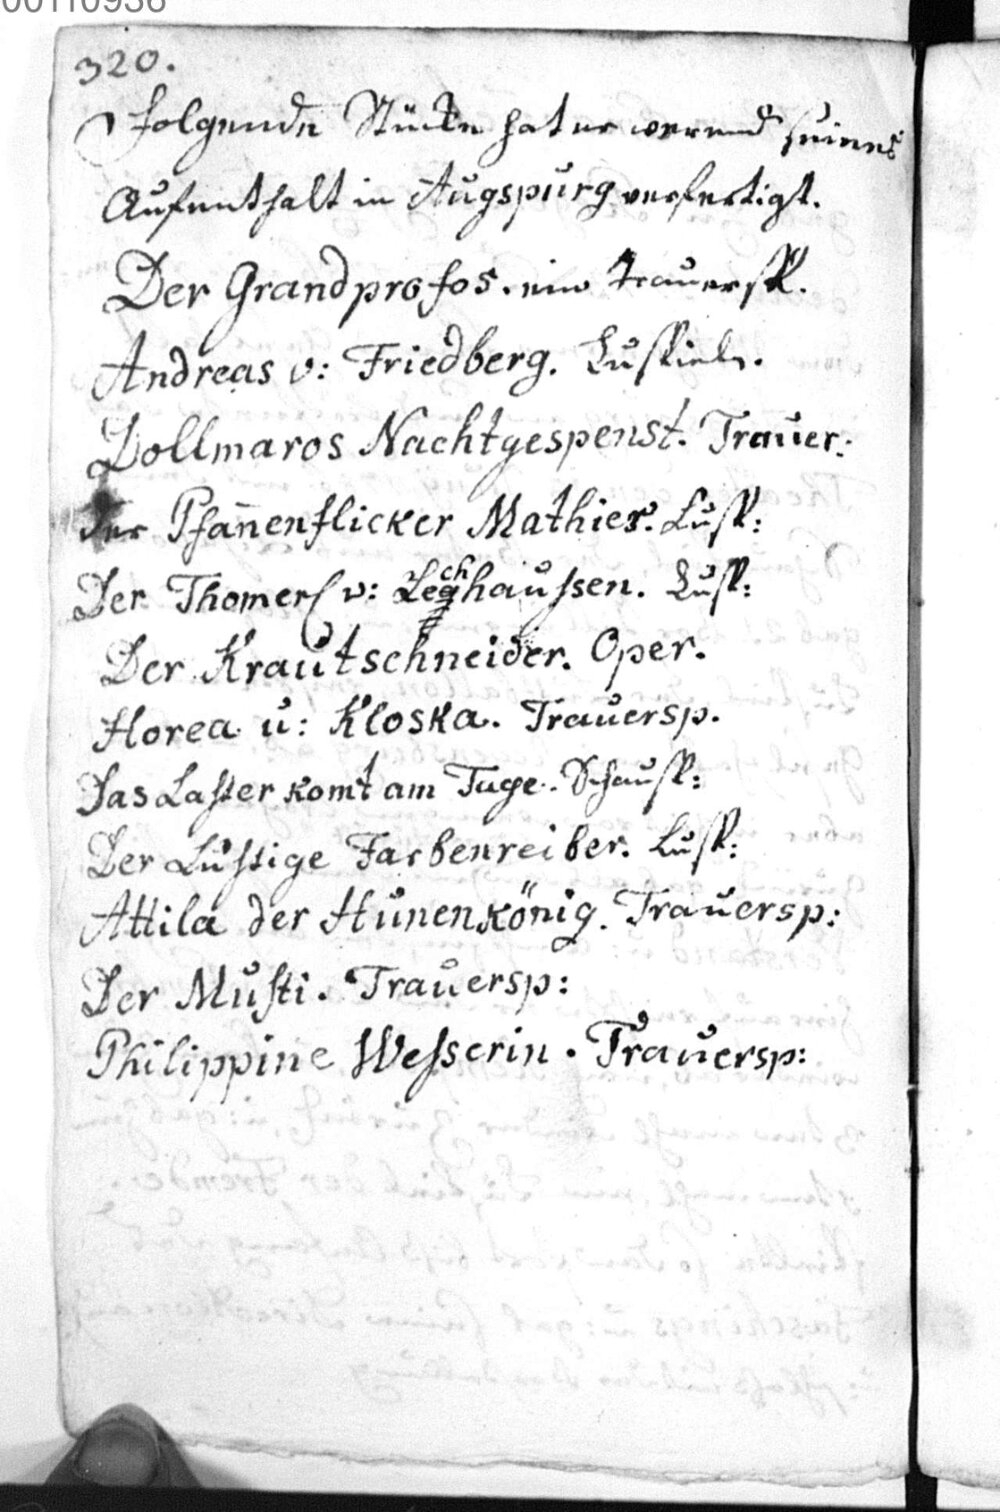 00110936
320.
Folgende Stücke hat er werend seines
Aufenthalt in Augspurg verfertigt.
Der Grandprofos. ein trauersp.
Andreas v: Friedberg. Luspiele.
Dollmaros Nachtgespenst. Trauer:
Der Pfan̄enflicker Mathies. Lusp:
Der Thomerl v: Lechhaussen. Lusp:
Der Krautschneider. Oper.
Horea u: Kloska. Trauersp.
Das Laster komt am Tage. Schausp:
Der Lustige Farbenreiber. Lusp:
Attila der Hunenkönig. Trauersp:
Der Mufti. Trauersp:
Philippine Welserin. Trauersp: